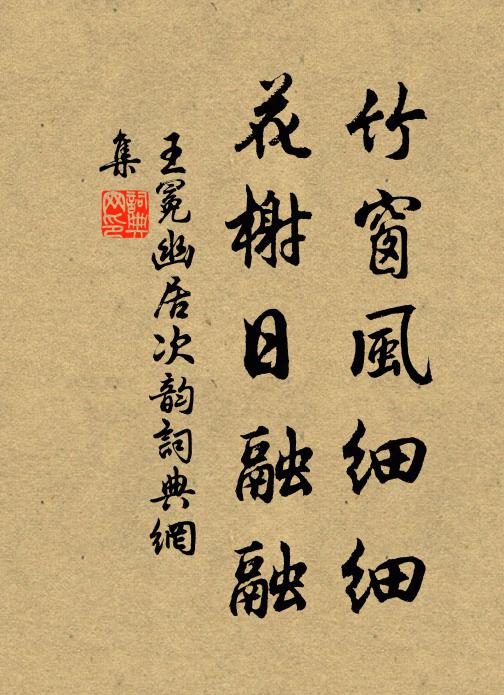 竹窗風細細
花榭日融融
王冕幽居次韵詞典網
集
詞典
网印